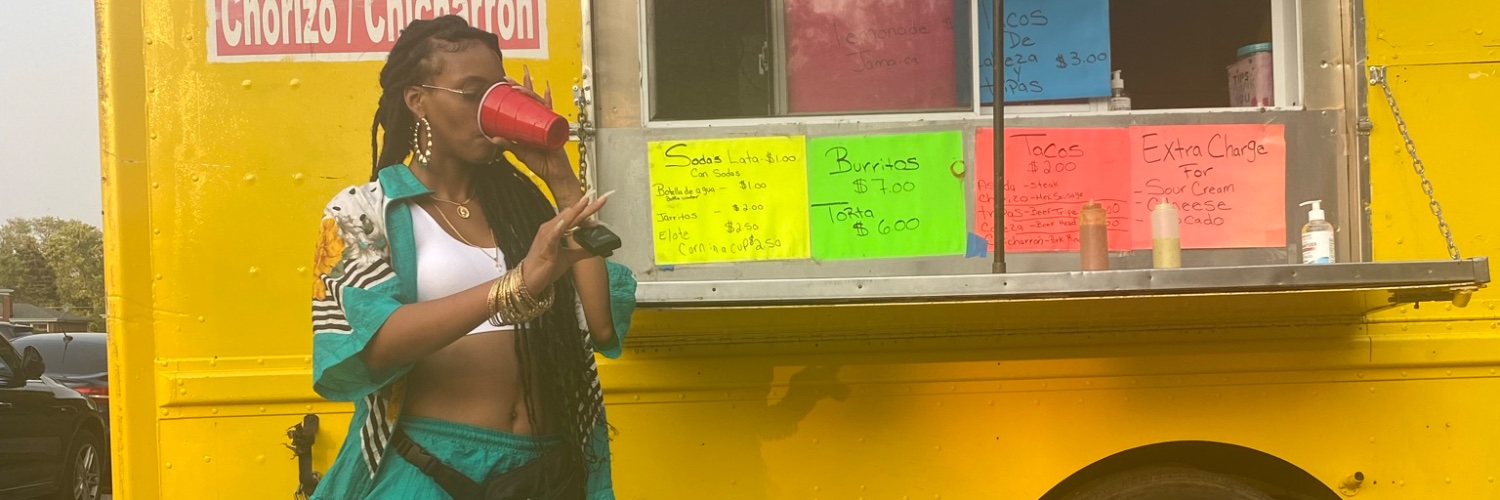 Chorizo / Chicharron
Lemonade $
Jamaica
Tacos
De
y
tripas
$3.00
TIPS
Sodas Lata-$1.00
Can Sodas
Botella de agua - $1.00
Jarritos - $2.00
Elote $2.50
Corn in a cup $2.50
Burritos
$7.00
Torta
$6.00
Tacos
$2.00
-steak
chorizo
tripas-Beef Tripe
-Beef Head
Extra Charge
For
-Sour Cream
-Cheese